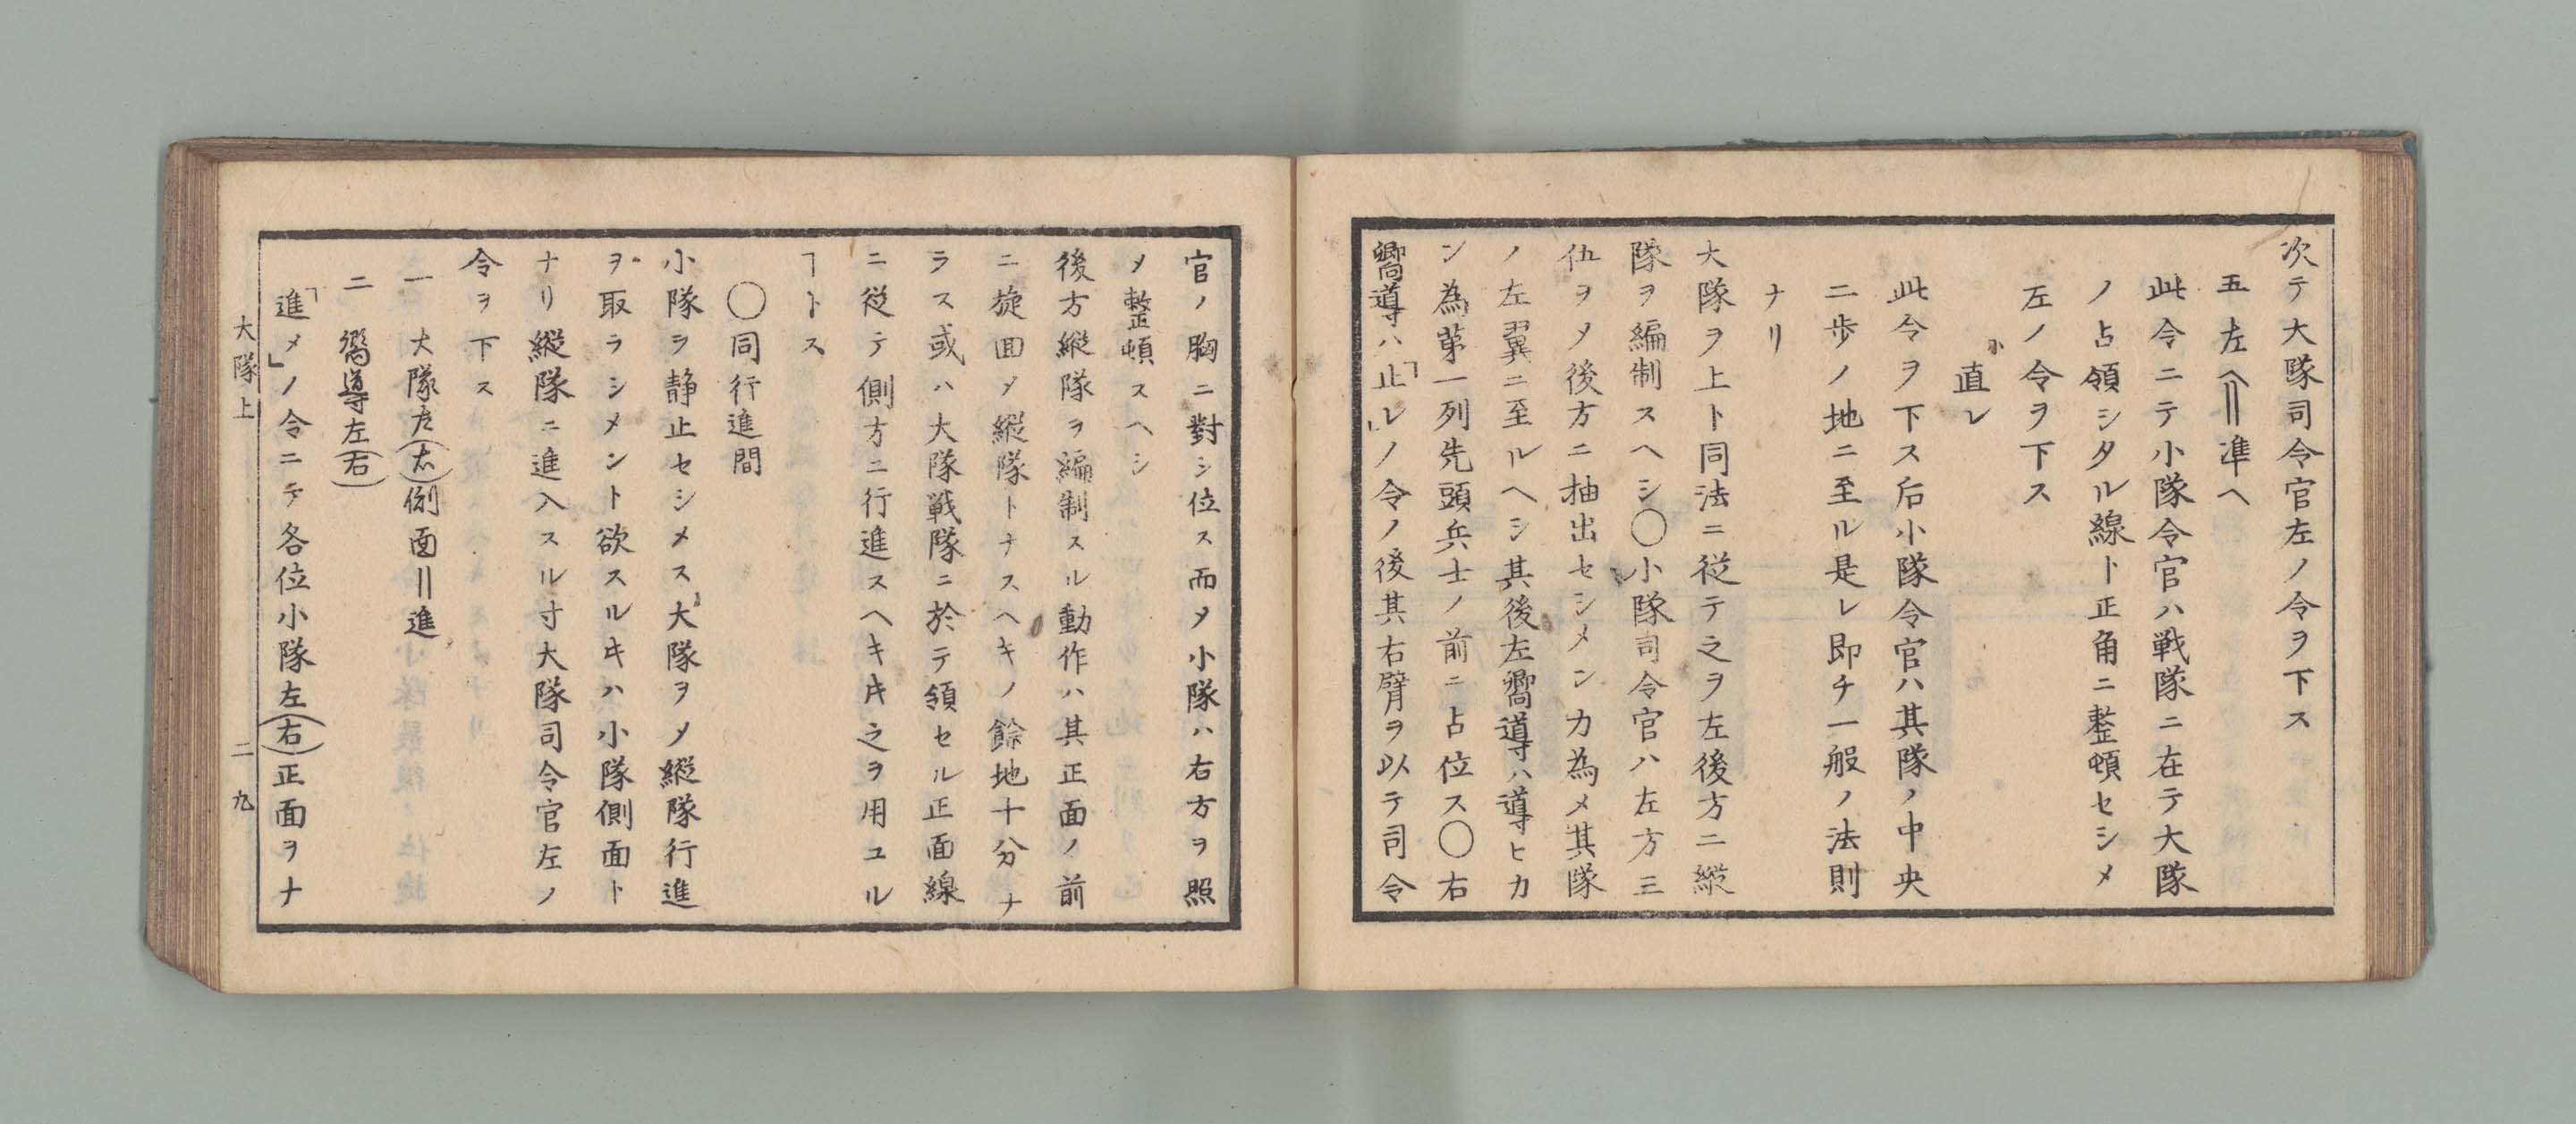 次テ大隊司令官左ノ令ヲ下ス
五左ヘ‖準ヘ
此令ニテ小隊令官ハ戦隊ニ在テ大隊
ノ占領シタル線ト正角ニ整頓セシメ
左ノ令ヲ下ス
直レ
此令ヲ下ス后小隊令官ハ其隊ノ中央
二歩ノ地ニ至ル是レ即チ一般ノ法則
ナリ
大隊ヲ上ト同法ニ従テ之ヲ左後方ニ縦
隊ヲ編制スヘシ〇小隊司令官ハ左方三
伍ヲ〆後方ニ抽出セシメンカ為メ其隊
ノ左翼ニ至ルヘシ其後左嚮導ハ導ヒカ
ン為第一列先頭兵士ノ前ニ占位ス〇右
嚮導ハ「止レ」ノ令ノ後其右臂ヲ以テ司令
官ノ胸ニ對シ位ス而〆小隊ハ右方ヲ照
メ整頓スヘシ
後方縦隊ヲ編制スル動作ハ其正面ノ前
ニ旋回〆縦隊トナスヘキノ餘地十分ナ
ラス或ハ大隊戦隊ニ於テ領セル正面線
ニ従テ側方ニ行進スヘキ𪜈之ヲ用ユル
ヿトス
〇同行進間
小隊ヲ静止セシメス大隊ヲ〆縦隊行進
ヲ取ラシメント欲スルキハ小隊側面ト
ナリ縦隊ニ進入スル寸大隊司令官左ノ
令ヲ下ス
一 大隊左(右)側面‖進
二 嚮導左(右)
「進メ」ノ令ニテ各位小隊左(右)正面ヲナ
大隊上
二九